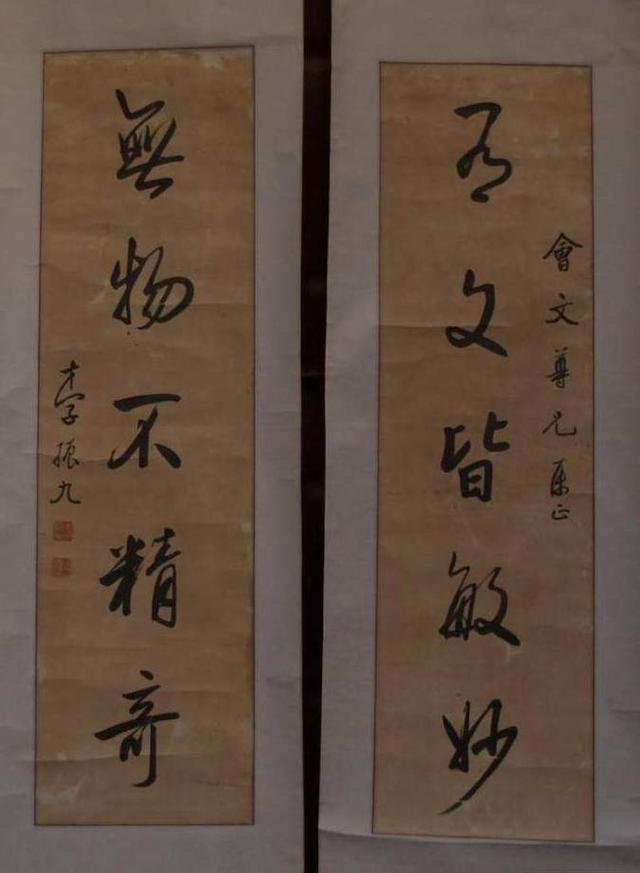 有文皆敏妙
會文尊兄屬正
無物不精奇
李振九